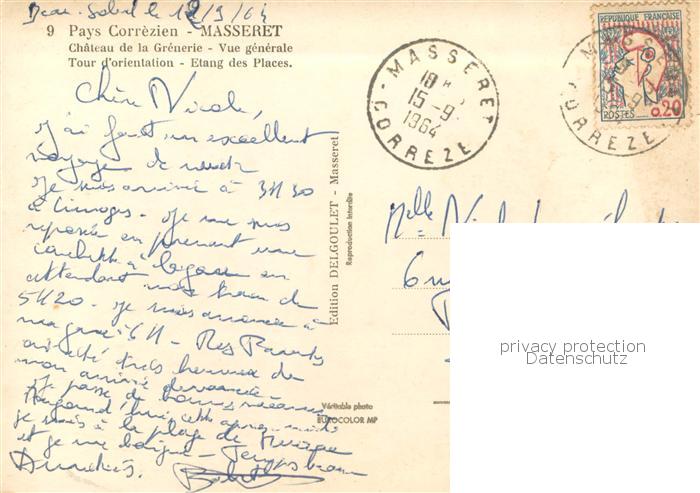 le 12/9/64
9 Pays Corrèzien - MASSERET
Château de la Grênerie - Vue générale
Tour d'orientation - Etang des Places.
Chère Nicole,
J'ai fait un excellent
voyage de nuit
Je suis arrivée à 3H30
à Limoges. Je me suis
reposée en prenant une
couchette à la gare en
attendant mon train de
5H20. Je suis arrivée à
ma gare 6H - Mes Parents
ont été très heureux de
mon arrivée
Je passe de bonnes vacances
Aujourd'hui cette après-midi
je suis à la plage de
et je me baigne - Temps beau
Amitiés.
Edition DELGOULET - Masseret
Reproduction Interdite
Véritable photo
EUROCOLOR MP
MASSERET
18 H
15-9
1964
CORREZE
REPUBLIQUE FRANÇAISE
0.20
POSTES
CORREZE
Mlle
privacy protection
Datenschutz